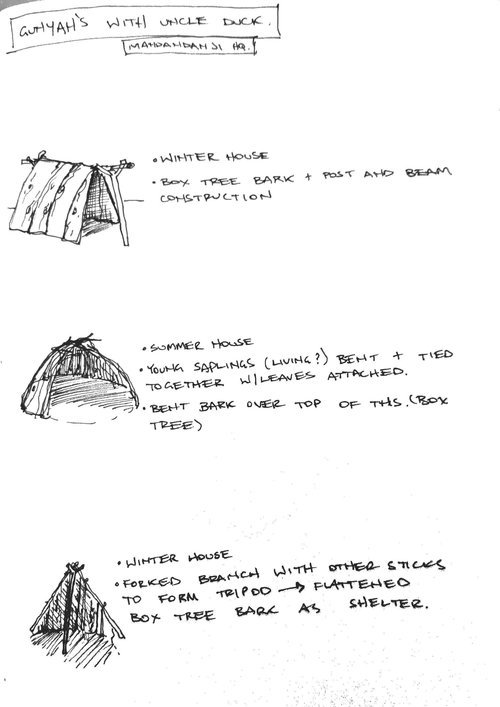 GUNYAH'S WITH UNCLE DUCK.
MANDANDANJI HQ.
• WINTER HOUSE
• BOX TREE BARK + POST AND BEAM
CONSTRUCTION
• SUMMER HOUSE
• YOUNG SAPLINGS (LIVING?) BENT + TIED
TOGETHER W/LEAVES ATTACHED.
• BENT BARK OVER TOP OF THIS. (BOX
TREE)
• WINTER HOUSE
• FORKED BRANCH WITH OTHER STICKS
TO FORM TRIPOD → FLATTENED
BOX TREE BARK AS SHELTER.